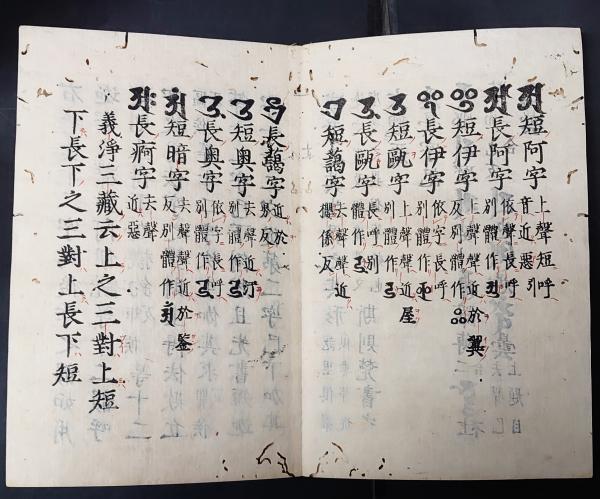 𑖀短阿字上聲短呼音近惡引
𑖁長阿字依聲長呼別體作
𑖂短伊字上聲聲近於翼反別體作
𑖃長伊字依字長呼別體作
𑖄短甌字上聲聲近屋別體作
𑖅長甌字長呼別體作
𑖊短藹字去聲聲近櫻係反
𑖋長藹字近於界反
𑖌短奧字去聲近汙別體作
𑖍長奧字依字長呼別體作
𑖀𑖽短暗字去聲聲近於鑒反別體作
𑖀𑖾長痾字去聲近惡
義淨三藏云上之三對上短
下長下之三對上長下短